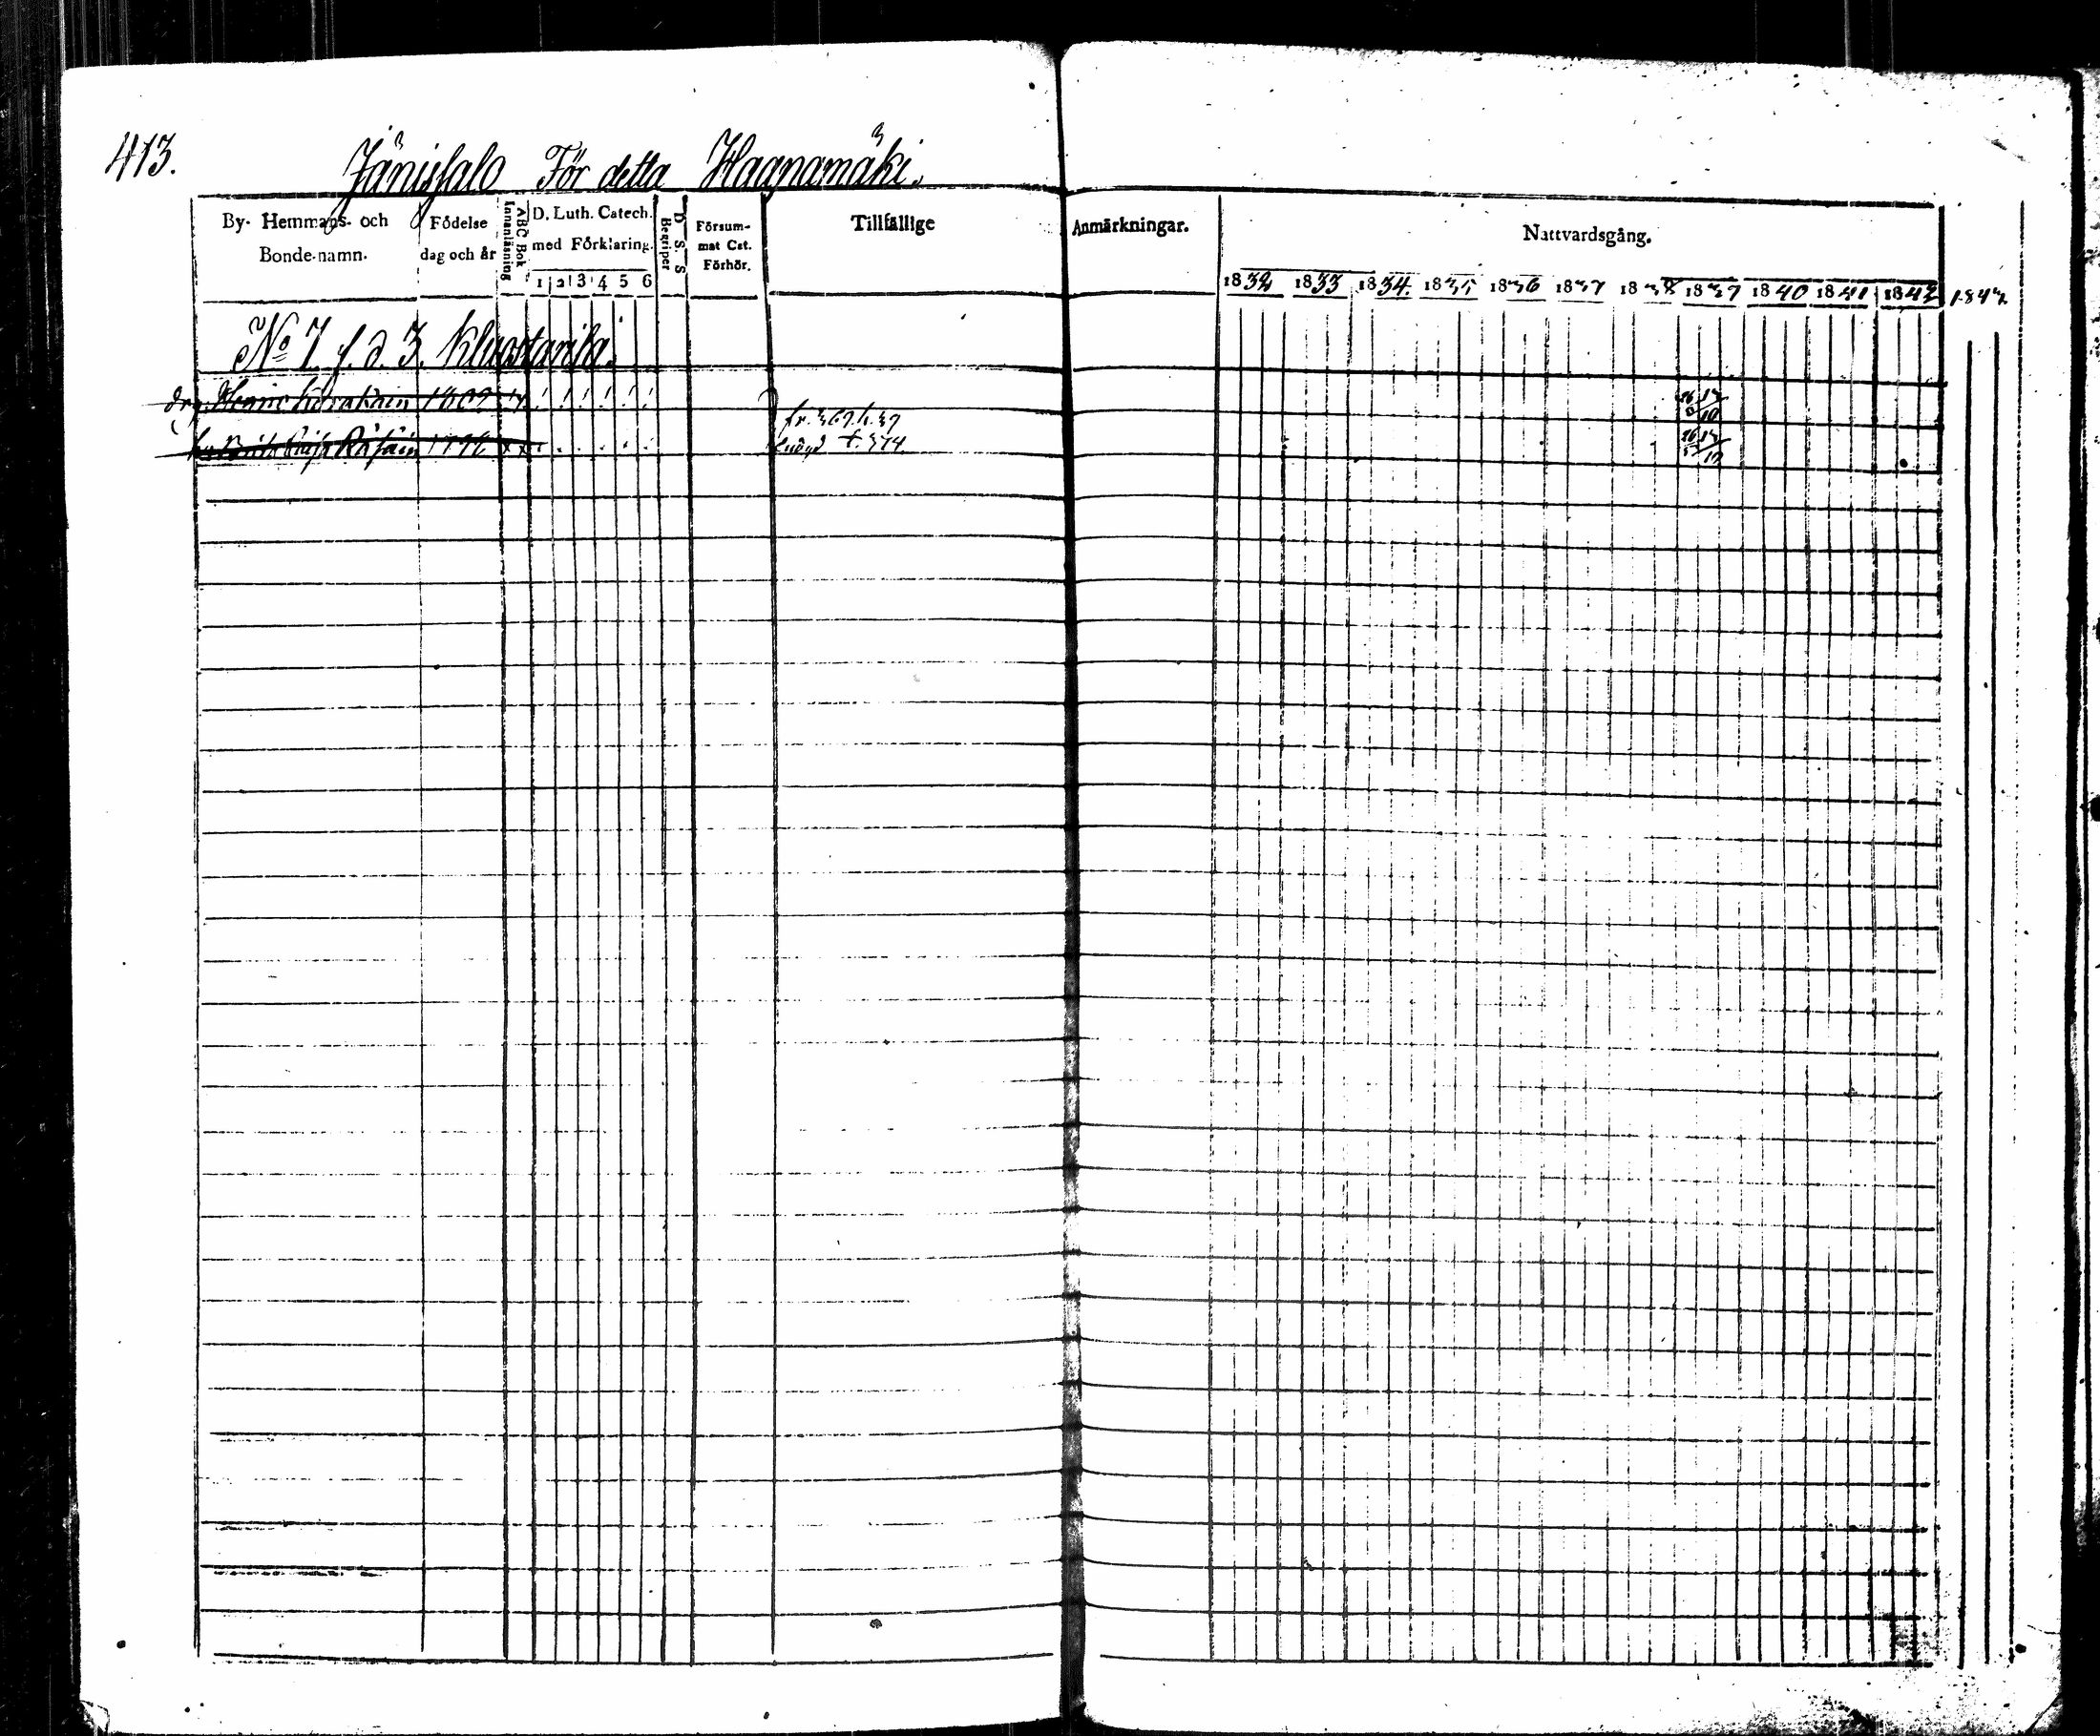 413.
Jänissalo För detta Haapamäki.
By- Hemmans- och Bonde-namn.
Födelse dag och år
ABC Bok Innanläsning
D. Luth. Catech. med Förklaring.
1 2 3 4 5 6
D. S. S Begriper
Försum- mat Cat. Förhör.
Tillfällige
Anmärkningar.
Nattvardsgång.
1832 1833 1834. 1835 1836 1837 1838 1839 1840 1841 1842 1843
No 7. f. d. 3.
1809
fr. 369. h. 39
1792
f. 374.